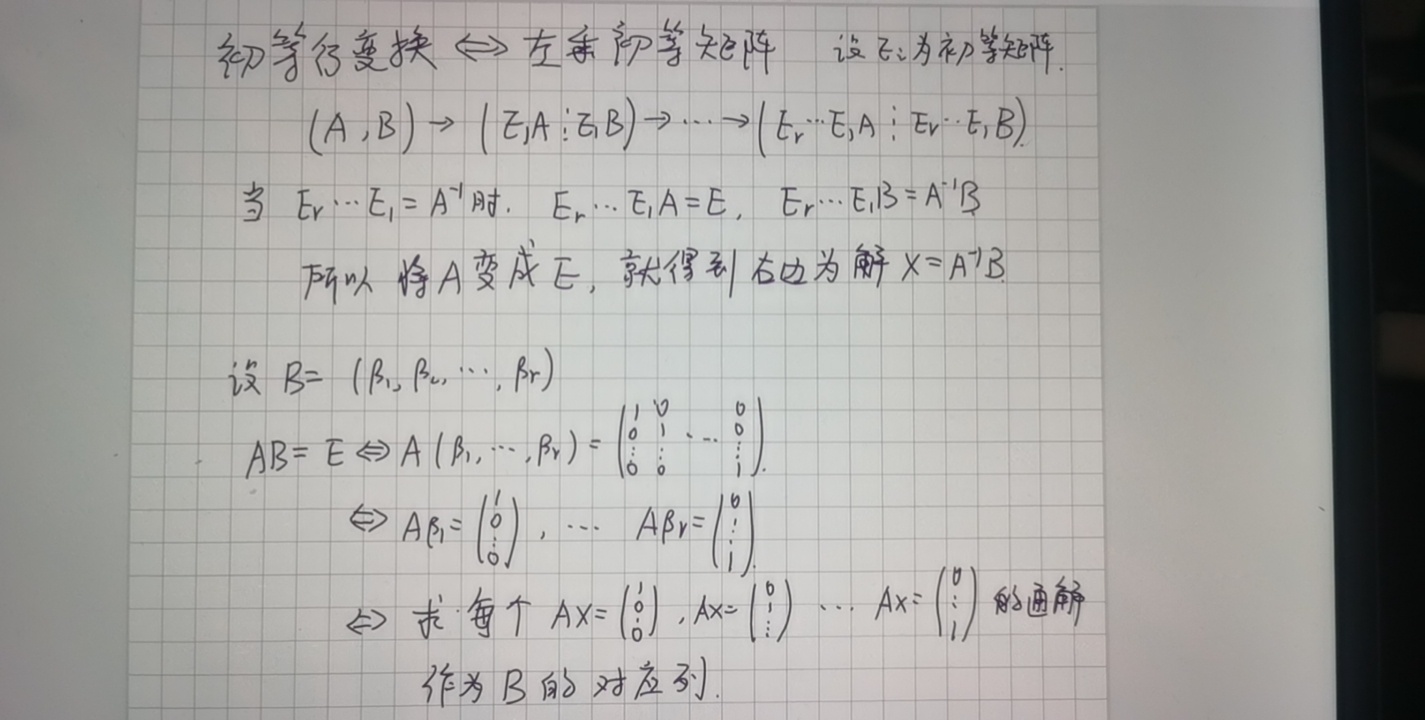 初等行变换 ⇔ 左乘初等矩阵 设 Eᵢ 为初等矩阵.
(A , B) → (E₁A ⋮ E₁B) → ⋯ → (Eᵣ⋯E₁A ⋮ Eᵣ⋯E₁B).
当 Eᵣ⋯E₁ = A⁻¹ 时. Eᵣ⋯E₁A = E, Eᵣ⋯E₁B = A⁻¹B
所以 将 A 变成 E, 就得到右边为解 X = A⁻¹B.
设 B = (β₁, β₂, ⋯, βᵣ)
AB = E ⇔ A (β₁, ⋯, βᵣ) = (1 0 ⋯ 0; 0 1 ⋯ 0; ⋮ ⋮ ⋮; 0 0 1).
⇔ Aβ₁ = (1; 0; ⋮; 0), ⋯ Aβᵣ = (0; ⋮; 1).
⇔ 求 每个 AX = (1; 0; ⋮; 0), AX = (0; 1; ⋮) ⋯ AX = (0; ⋮; 1) 的通解
作为 B 的 对应列.